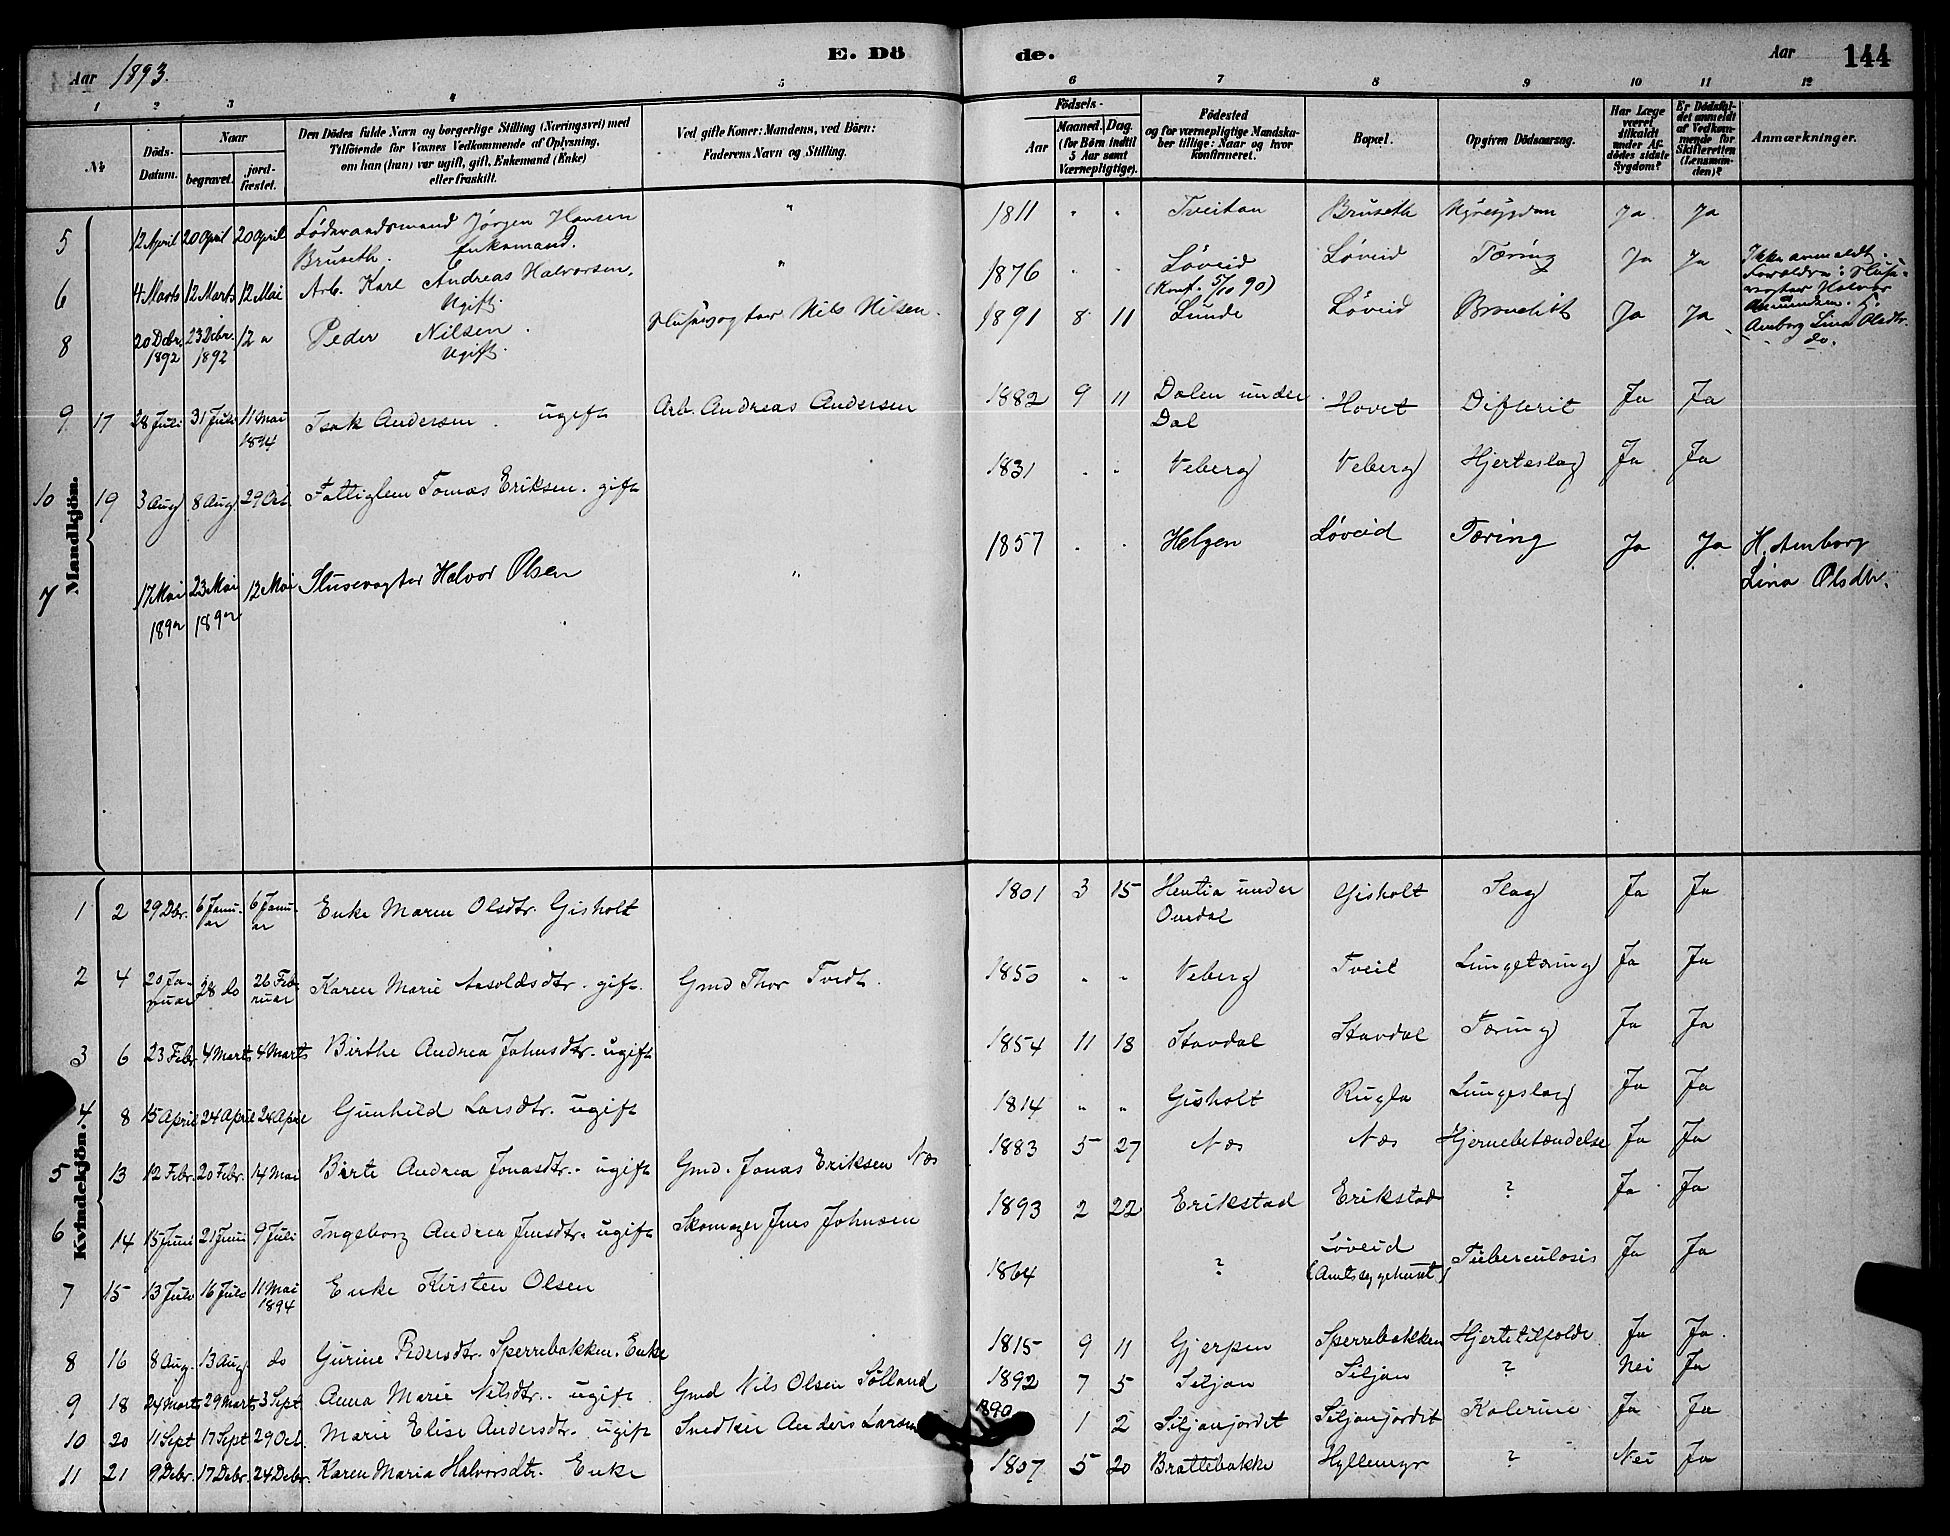 Aar 1893.
E. Dö
de.
Aar
144
1 2 3 4 5 6 7 8 9 10 11 12
№
Döds-Datum.
Naar
begravet.
jord-fæstet.
Den Dödes fulde Navn og borgerlige Stilling (Næringsvei) med
Tilföiende for Voxnes Vedkommende af Oplysning,
om han (hun) var ugift, gift, Enkemand (Enke)
eller fraskilt.
Ved gifte Koner: Mandens, ved Börn:
Faderens Navn og Stilling.
Födsels-
Aar
Maaned. Dag.
(for Börn indtil
5 Aar samt
Værnepligtige).
Födested
og for værnepligtige Mandska-
ber tillige: Naar og hvor
konfirmeret.
Bopæl.
Opgiven Dödsaarsag.
Har Læge
været
tilkaldt
under Af-
dödes sidste
Sygdom?
Er Dödsfal-
det anmeldt
af Vedkom-
mende for
Skifteretten
(Lensman-
den)?
Anmærkninger.
Mandkjön.
5 12 April 20 April 20 April Jørgen Hansen " 1811 " " Tveitan Bruseth Ja Ja
Bruseth. Enkemand.
6 4 Marts 12 Marts 12 Mai Arb. Karl Andreas Halvorsen, " 1876 " " Løveid Løveid Tæring Ja Ja Ikke anmeldt.
Ugift. (Konf. 5/10 90)
8 20 Debr. 1892 23 Debr. 1892 12 " Peder Nilsen. Slusevogter Nils Nilsen. 1891 8 11 Lunde Løveid Ja Ja
Ugift.
Lina Olsdtr.
do.
9 17 28 Juli 31 Juli 11 Mai 1894 Isak Andersen. ugift Arb. Andreas Andersen 1882 9 11 Dalen under Dal Hovet Difterit Ja Ja
10 19 3 Aug 8 Aug 29 Oct. Fattiglem Tomas Eriksen. gift 1831 " " Veberg Veberg Hjerteslag Ja Ja
7 17 Mai 1892 23 Mai 1892 12 Mai Slusevogter Halvor Olsen " 1857 " " Helgen Løveid Tæring Ja Ja H. Amborg
Lina Olsdtr.
Kvindekjön.
1 2 29 Dbr. 6 Januar 6 Januar Enke Maren Olsdtr. Gisholt 1801 3 15 Hentia under Omdal Gisholt Slag Ja Ja
2 4 20 Januar 28 do 26 Februar Karen Marie Aasoldsdtr. gift. Gmd Thor Tvedt. 1850 " " Veberg Tveit Lungetæring Ja Ja
3 6 23 Febr. 4 Marts 4 Marts Birthe Andrea Johnsdtr. ugift 1854 11 18 Stavdal Stavdal Tæring Ja Ja
4 8 15 April 24 April 24 April Gunhild Larsdtr. ugift 1814 " " Gisholt Rugla Lungeslag Ja Ja
5 13 12 Febr. 20 Febr. 14 Mai Birte Andrea Jonasdtr. ugift Gmd. Jonas Eriksen Næs 1883 5 27 Næs Næs Hjernebetændelse Ja Ja
6 14 15 Juni 21 Juni 9 Juli Ingeborg Andrea Jensdtr. ugift Skomager Jens Johnsen 1893 2 22 Erikstad Erikstad ? Ja Ja
7 15 13 Juli 16 Juli 11 Mai 1894 Enke Kirsten Olsen 1864 ? Løveid (Amtssygehuset) Tuberculosis Ja Ja
8 16 8 Aug. 13 Aug. do Gurine Pedersdtr. Sperrebakken. Enke 1815 9 11 Gjerpen Sperrebakken Hjertetilfælde Ja Ja.
9 18 24 Marts 29 Marts 3 Sept. Anna Marie Nilsdtr. ugift Gmd Nils Olsen Sølland 1892 7 5 Siljan Siljan ? Nei Ja
10 20 11 Sept 17 Sept 29 Oct. Marie Elise Andersdtr. ugift Snedker Anders Larsen 1890 1 2 Siljanjordet Siljanjordet Kolerine Ja Ja
11 21 9 Debr. 17 Debr. 24 Debr. Karen Maria Halvorsdtr. Enke 1807 5 20 Brattebakke Hyllemyr ? Nei Ja